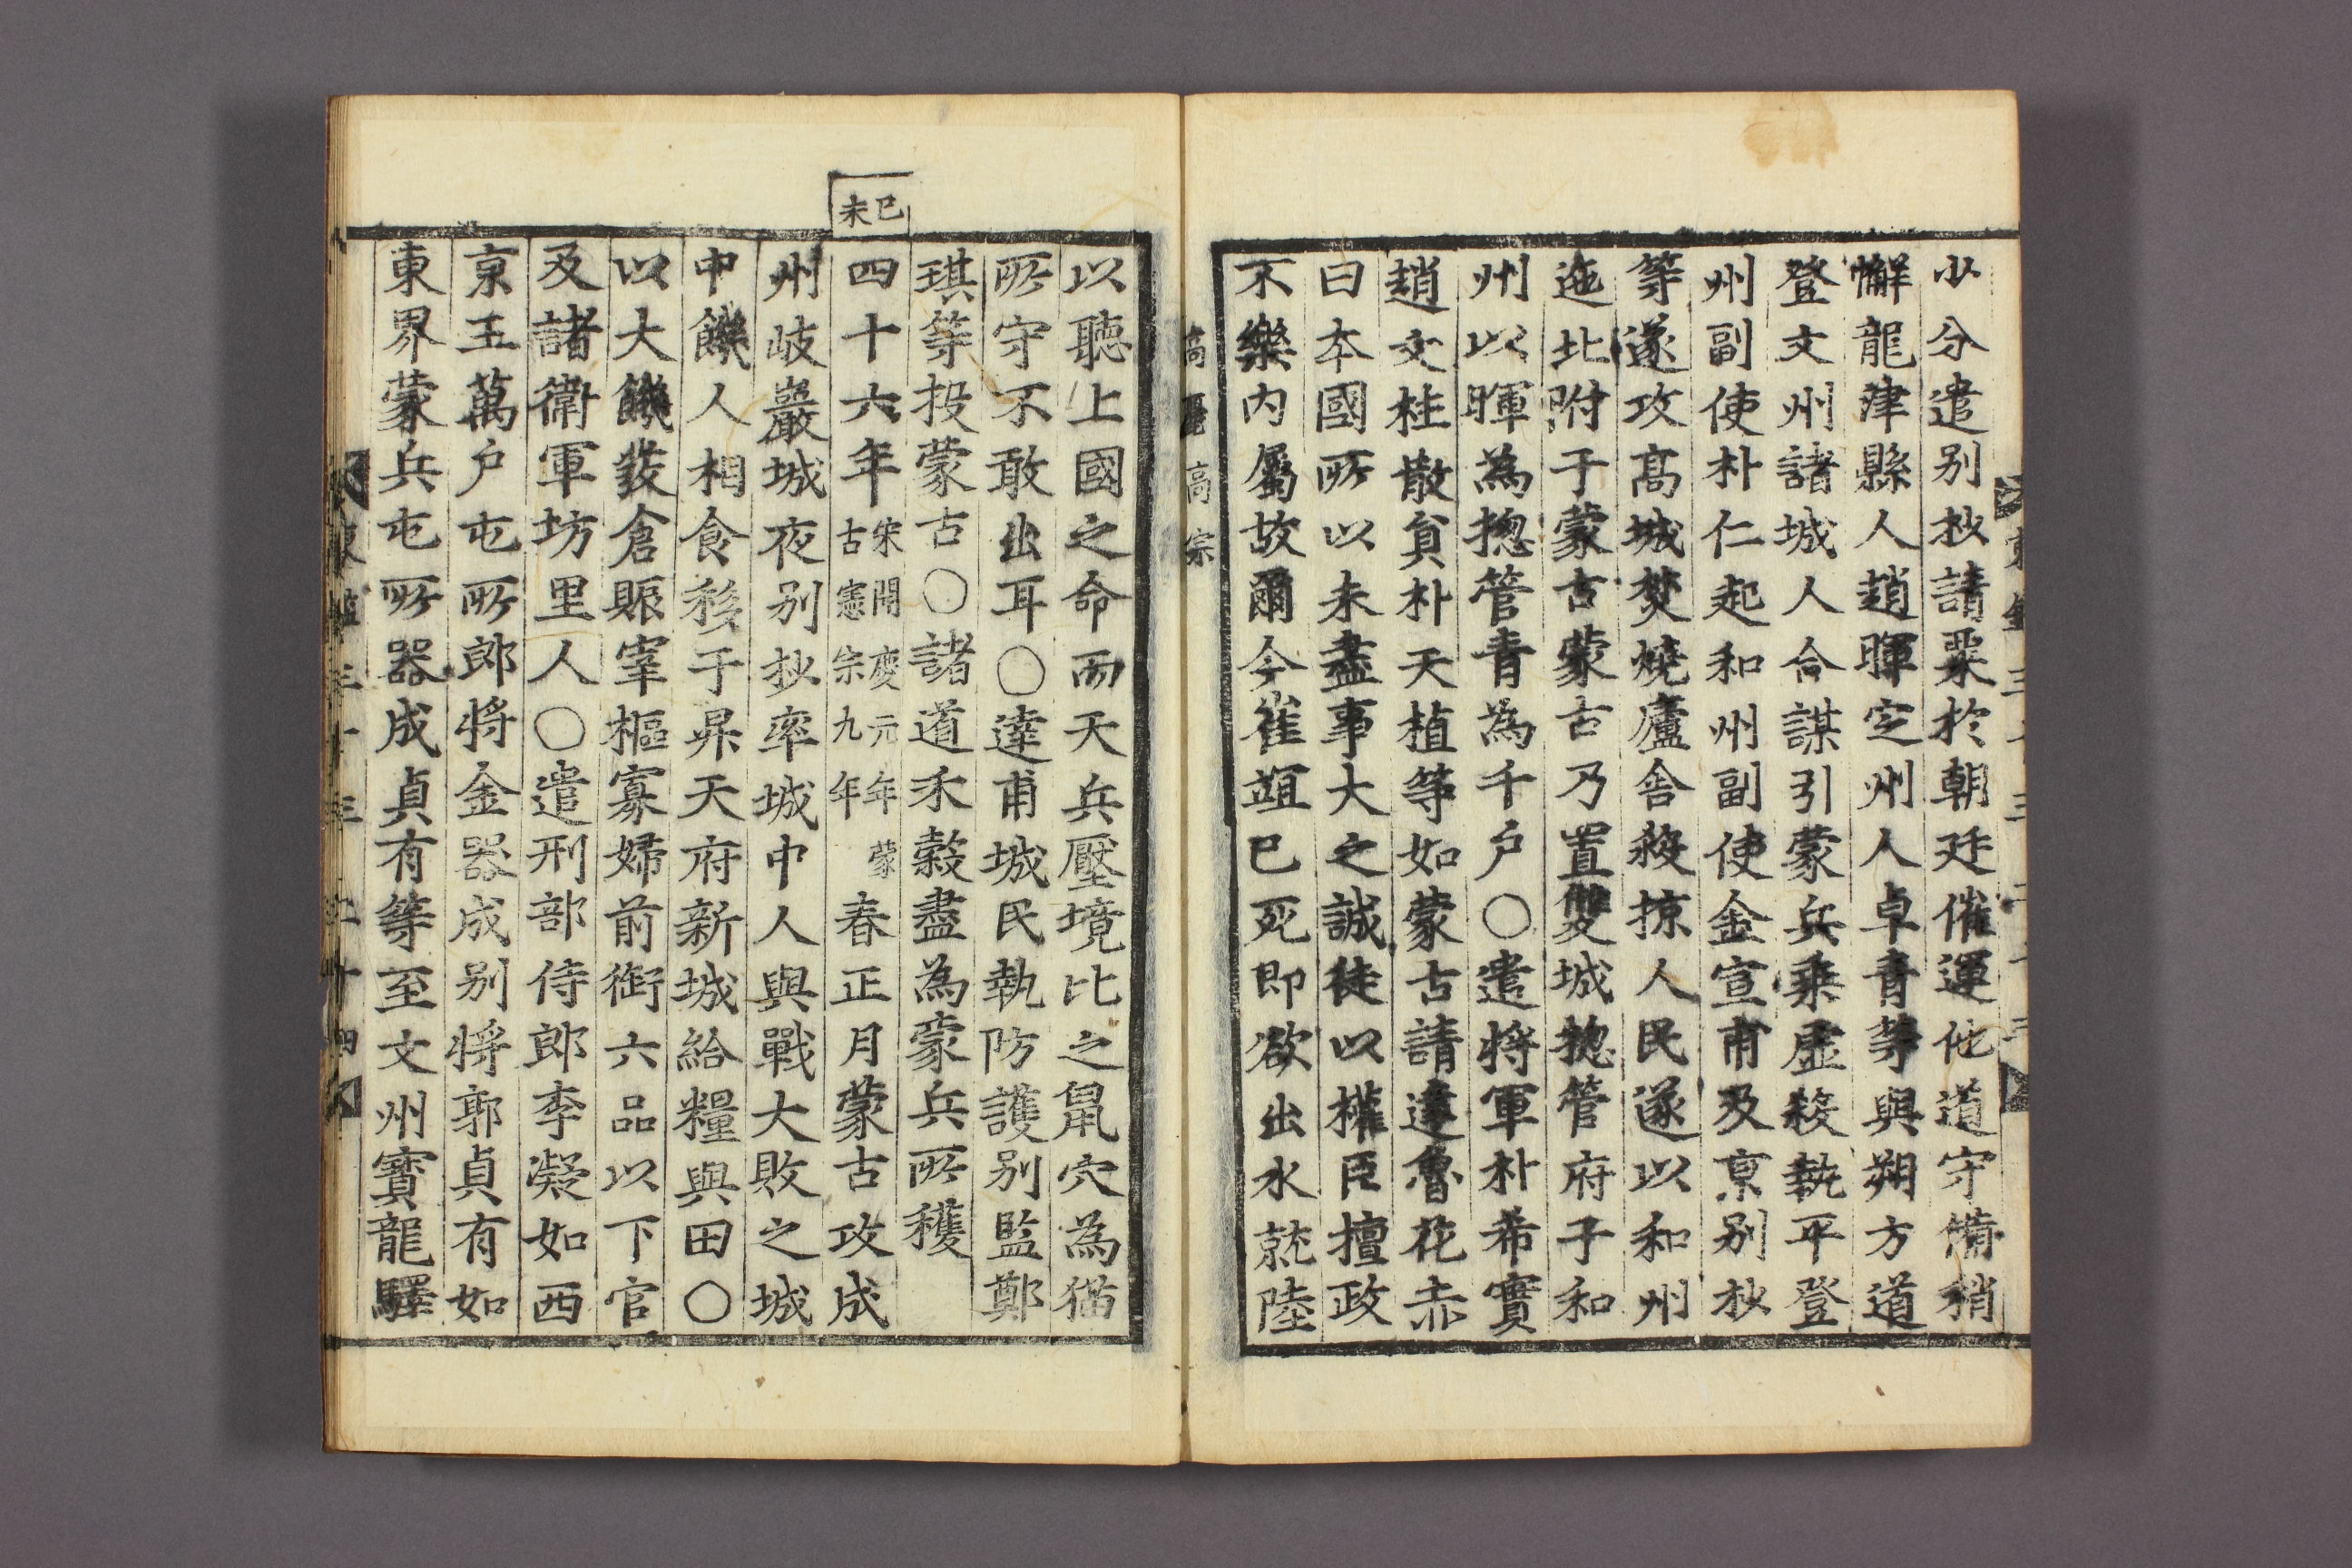 少分遣別抄請粟於朝廷催運他道守備稍
懈龍津縣人趙暉定州人卓青等與朔方道
登文州諸城人合謀引蒙兵乘虛殺執平登
州副使朴仁起和州副使金宣甫及京別抄
等遂攻高城焚燒廬舍殺掠人民遂以和州
迤北附于蒙古蒙古乃置雙城摠管府于和
州以暉為摠管青為千戶○遣將軍朴希實
趙文柱散負朴天植等如蒙古請達魯花赤
曰本國所以未盡事大之誠徒以權臣擅政
不樂內屬故爾今崔竩已死即欲出水就陸
高麗 高宗
以聽上國之命而天兵壓境比之鼠穴為猫
所守不敢出耳○達甫城民執防護別監鄭
琪等投蒙古○諸道禾穀盡為蒙兵所穫
己未
四十六年宋開慶元年蒙古憲宗九年春正月蒙古攻成
州岐巖城夜別抄率城中人與戰大敗之城
中饑人相食移于昇天府新城給糧與田○
以大饑發倉賑宰樞寡婦前銜六品以下官
及諸衛軍坊里人○遣刑部侍郎李凝如西
京王萬戶屯所郎將金器成別將郭貞有如
東界蒙兵屯所器成貞有等至文州寶龍驛
東鑑三十三 二十四